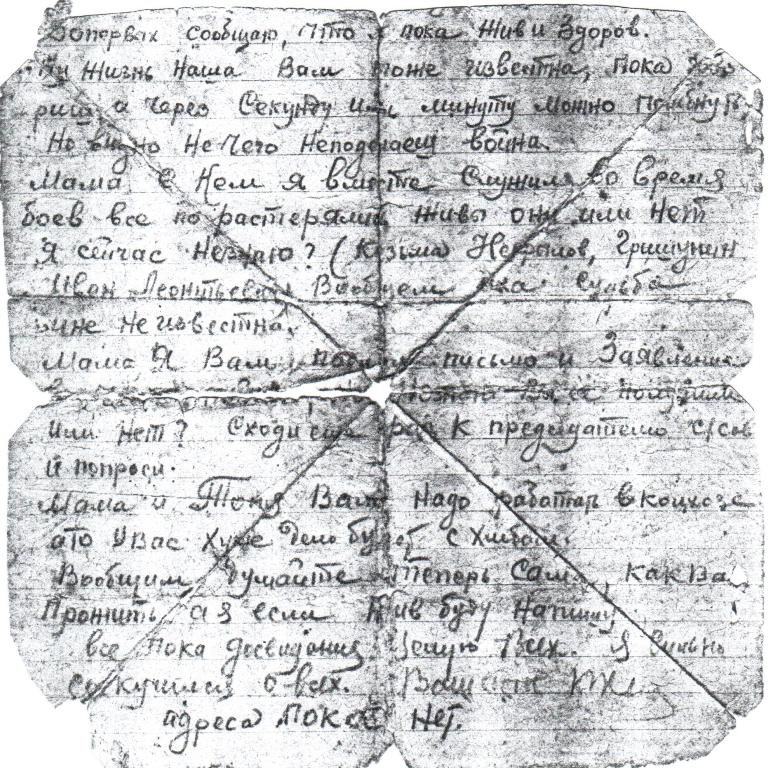 Вопервых сообщаю, что я пока жив и здоров.
жизнь наша Вам тоже известна, пока
а через секунду или минуту можно погибнуть,
Но видно не чего неподелаеш война.
Мама с кем я вместе служил во время
боев все по растерялись живы они или нет
я сейчас незнаю? (Кузьма Некрылов, Гришунин
Иван Леонтьевич) Вообщем их судьба
мне не известна.
Мама Я Вам письмо и Заявление
Вы её получили
или нет? Сходи еще раз к председателю с/сов
и попроси.
Мама и Тоня Вам надо работать в колхозе
ато у Вас хуже дело будет с хлебом.
Вообщим думайте теперь сами, как Ва
Прожить, а я если жив буду напишу
все пока досвидания Целую Всех. Я сильно
соскучился о всех. Ваш
адреса пока нет.